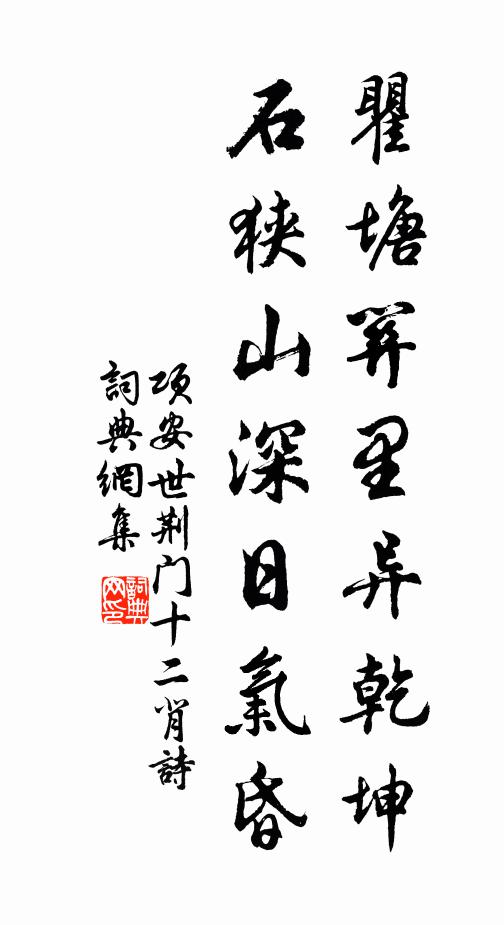 瞿塘關里异乾坤
石狹山深日氣昏
項安世荆门十二肖詩
詞典網集
詞典
网印